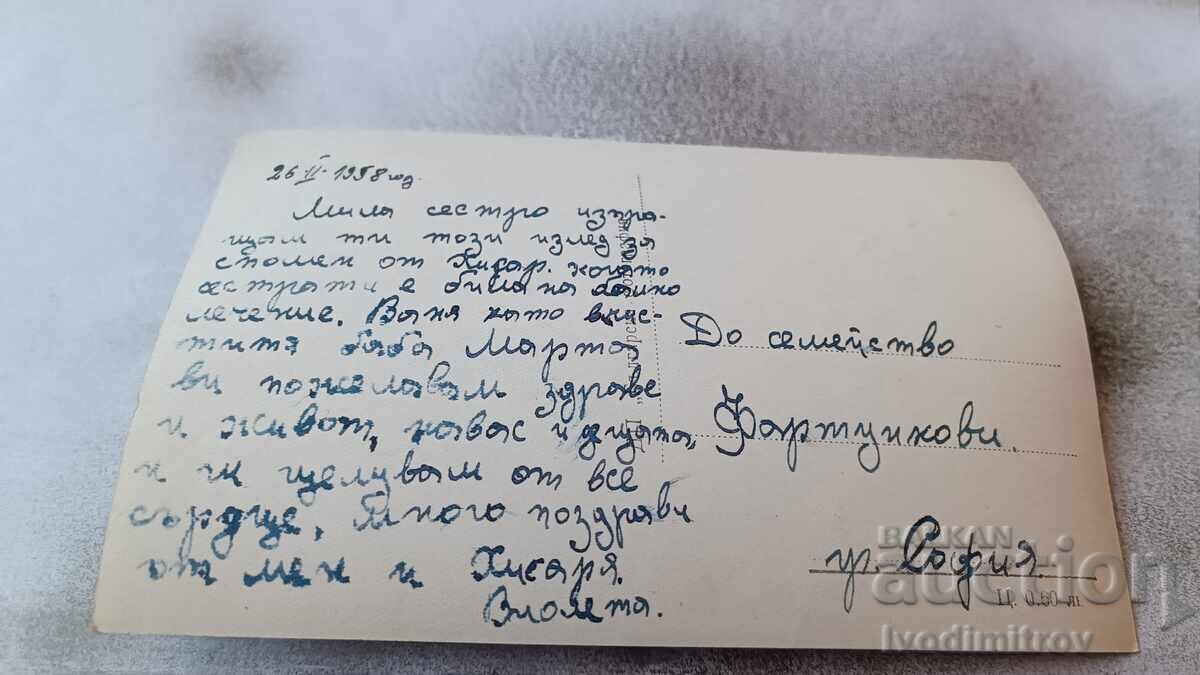 26 II. 1958 год.
Мила сестро изпра-
щам ти този излед за
спомен от Хисар. която
сестрати е била на банно
лечение. Ваня като
тита баба Марта
ви пожелавам здраве
и живот, на вас и дцата,
и ги целувам от все
сърдце, Много поздрави
от мен и Хисаря.
Виолета.
До семейство
Фартункови.
гр. София.
Ц. 0.60 лв
BALKAN
auction
Ivodimitrov